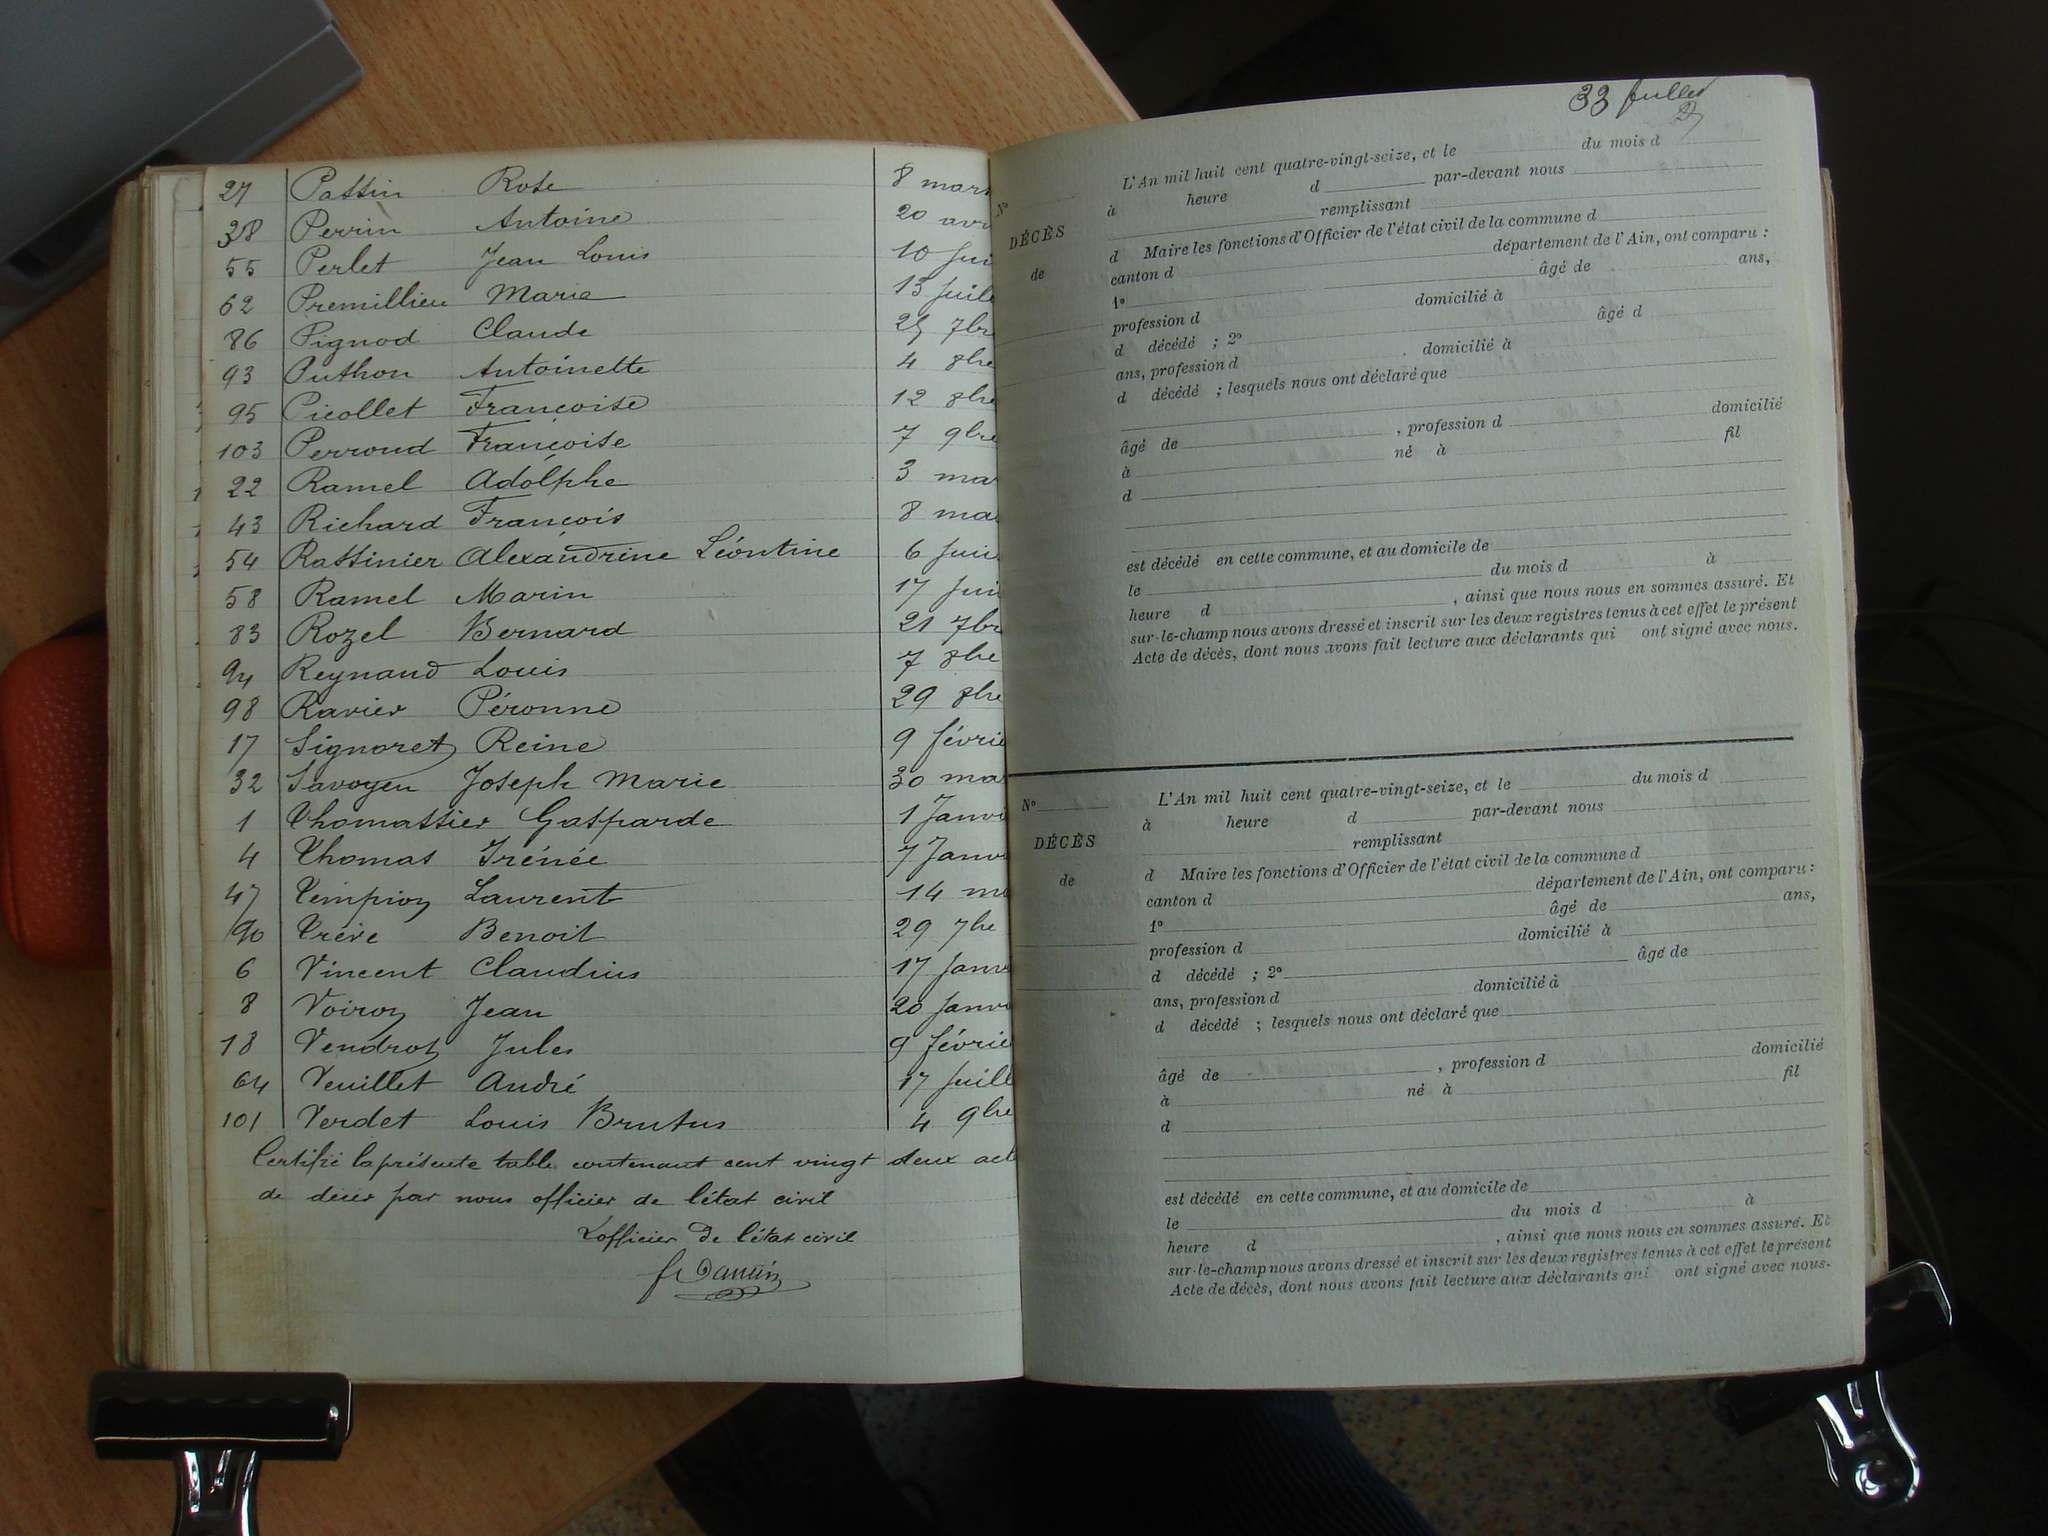 27 Passin Rose 8 mars
38 Perrin Antoine 20 avr
55 Perlet Jean Louis 10 Jui
62 Premillieu Marie 13 Juill
86 Pignod Claude 25 7bre
93 Puthon Antoinette 4 8bre
95 Picollet Françoise 12 8bre
103 Perroud Françoise 7 9bre
22 Ramel Adolphe 3 mar
43 Richard François 8 mai
54 Rassinier Alexandrine Léontine 6 Juin
58 Ramel Marin 17 Juin
83 Rozel Bernard 21 7br
94 Reynaud Louis 7 8bre
98 Ravier Péronne 29 8bre
17 Signoret Reine 9 févrie
32 Savoyen Joseph Marie 30 mar
1 Thomassier Gasparde 1 Janvi
4 Thomas Irénée 7 Janv
47 Tempion Laurent 14 ma
90 Trève Benoit 29 7bre
6 Vincent Claudius 17 Janv
8 Voiron Jean 20 Janv
18 Vendrot Jules 9 févrie
64 Veuillet André 17 Juill
101 Verdet Louis Brutus 4 9bre
Certifié la présente table contenant cent vingt deux act
de décès par nous officier de l'état civil
L'officier de l'état civil
33 feuillet
L'An mil huit cent quatre-vingt-seize, et le du mois d
à heure d par-devant nous
N° remplissant
DÉCÈS d Maire les fonctions d'Officier de l'état civil de la commune d
de canton d département de l'Ain, ont comparu :
1° âgé de ans,
profession d domicilié à
d décédé ; 2° âgé d
ans, profession d domicilié à
d décédé ; lesquels nous ont déclaré que
domicilié
âgé de , profession d fil
à né à
d
est décédé en cette commune, et au domicile de
le du mois d à
heure d , ainsi que nous nous en sommes assuré. Et
sur-le-champ nous avons dressé et inscrit sur les deux registres tenus à cet effet le présent
Acte de décès, dont nous avons fait lecture aux déclarants qui ont signé avec nous.
N° L'An mil huit cent quatre-vingt-seize, et le du mois d
à heure d par-devant nous
DÉCÈS remplissant
de d Maire les fonctions d'Officier de l'état civil de la commune d
canton d département de l'Ain, ont comparu :
1° âgé de ans,
profession d domicilié à
d décédé ; 2° âgé de
ans, profession d domicilié à
d décédé ; lesquels nous ont déclaré que
domicilié
âgé de , profession d fil
à né à
d
est décédé en cette commune, et au domicile de
le du mois d à
heure d , ainsi que nous nous en sommes assuré. Et
sur-le-champ nous avons dressé et inscrit sur les deux registres tenus à cet effet le présent
Acte de décès, dont nous avons fait lecture aux déclarants qui ont signé avec nous.